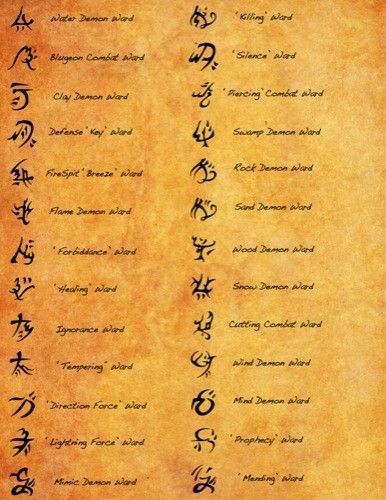 Water Demon Ward
Blugeon Combat Ward
Clay Demon Ward
Defense 'Key' Ward
FireSpit 'Breeze' Ward
Flame Demon Ward
'Forbiddance' Ward
'Healing' Ward
Ignorance Ward
"Tempering" Ward
'Direction Force' Ward
'Lightning Force' Ward
Mimic Demon Ward
'Killing' Ward
'Silence' Ward
'Piercing' Combat Ward
Swamp Demon Ward
Rock Demon Ward
Sand Demon Ward
Wood Demon Ward
Snow Demon Ward
Cutting Combat Ward
Wind Demon Ward
Mind Demon Ward
'Prophecy' Ward
'Mending' Ward